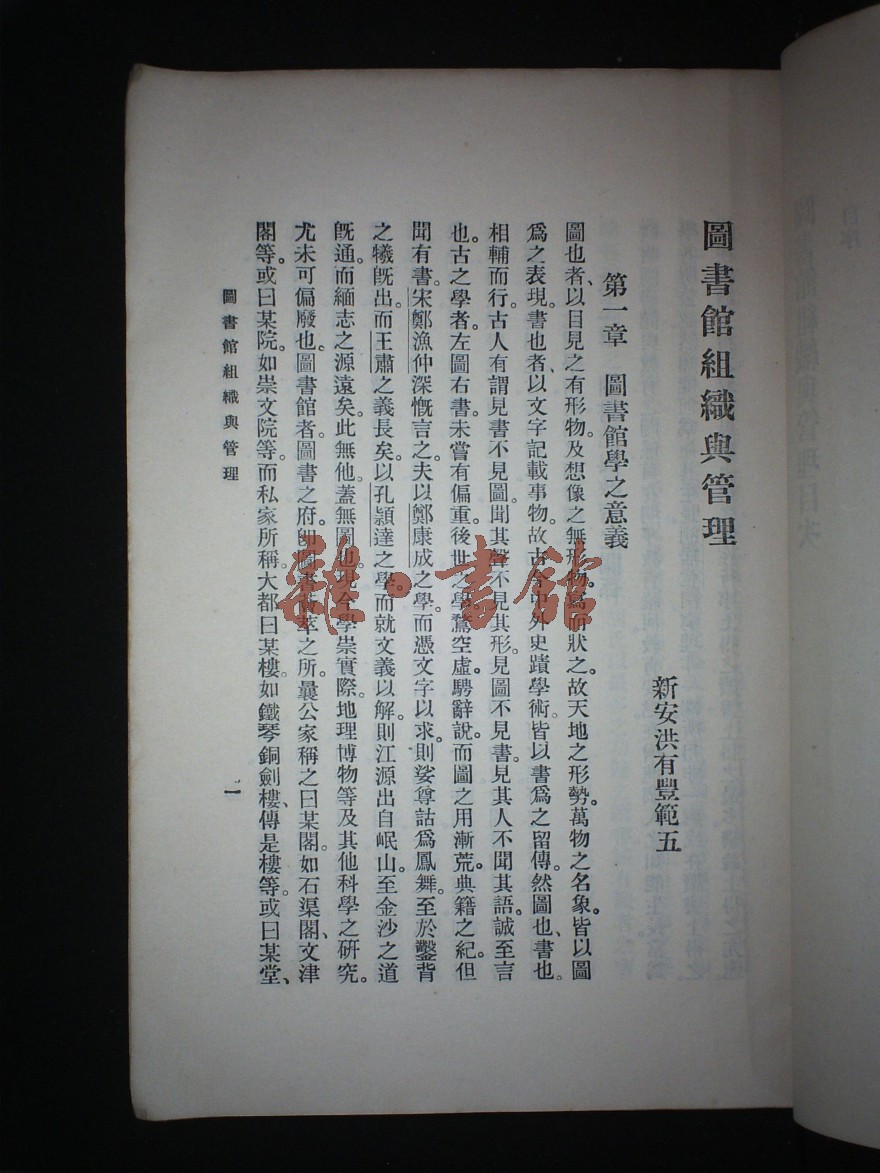 圖書館組織與管理
新安洪有豐範五
第一章　圖書館學之意義
圖也者、以目見之有形物、及想像之無形物、寫而狀之。故天地之形勢。萬物之名象。皆以圖
爲之表現。書也者、以文字記載事物。故古今中外史蹟學術。皆以書爲之留傳。然圖也、書也。
相輔而行。古人有謂見書不見圖。聞其聲不見其形。見圖不見書。見其人不聞其語。誠至言
也。古之學者。左圖右書。未嘗有偏重。後世之學。騖空虛。騁辭說。而圖之用漸荒。典籍之紀。但
聞有書。宋鄭漁仲深慨言之。夫以鄭康成之學。而憑文字以求。則娑尊詁爲鳳舞。至於鑿背
之犧旣出。而王肅之義長矣。以孔頴達之學。而就文義以解。則江源出自岷山。至金沙之道
旣通。而緬志之源遠矣。此無他。蓋無圖也。現今學崇實際。地理博物等及其他科學之研究。
尤未可偏廢也。圖書館者。圖書之府。卽圖書薈萃之所。曩公家稱之曰某閣。如石渠閣、文津
閣等。或曰某院。如崇文院等。而私家所稱。大都曰某樓。如鐵琴銅劍樓、傳是樓等。或曰某堂、
圖書館組織與管理
一
雜·書館